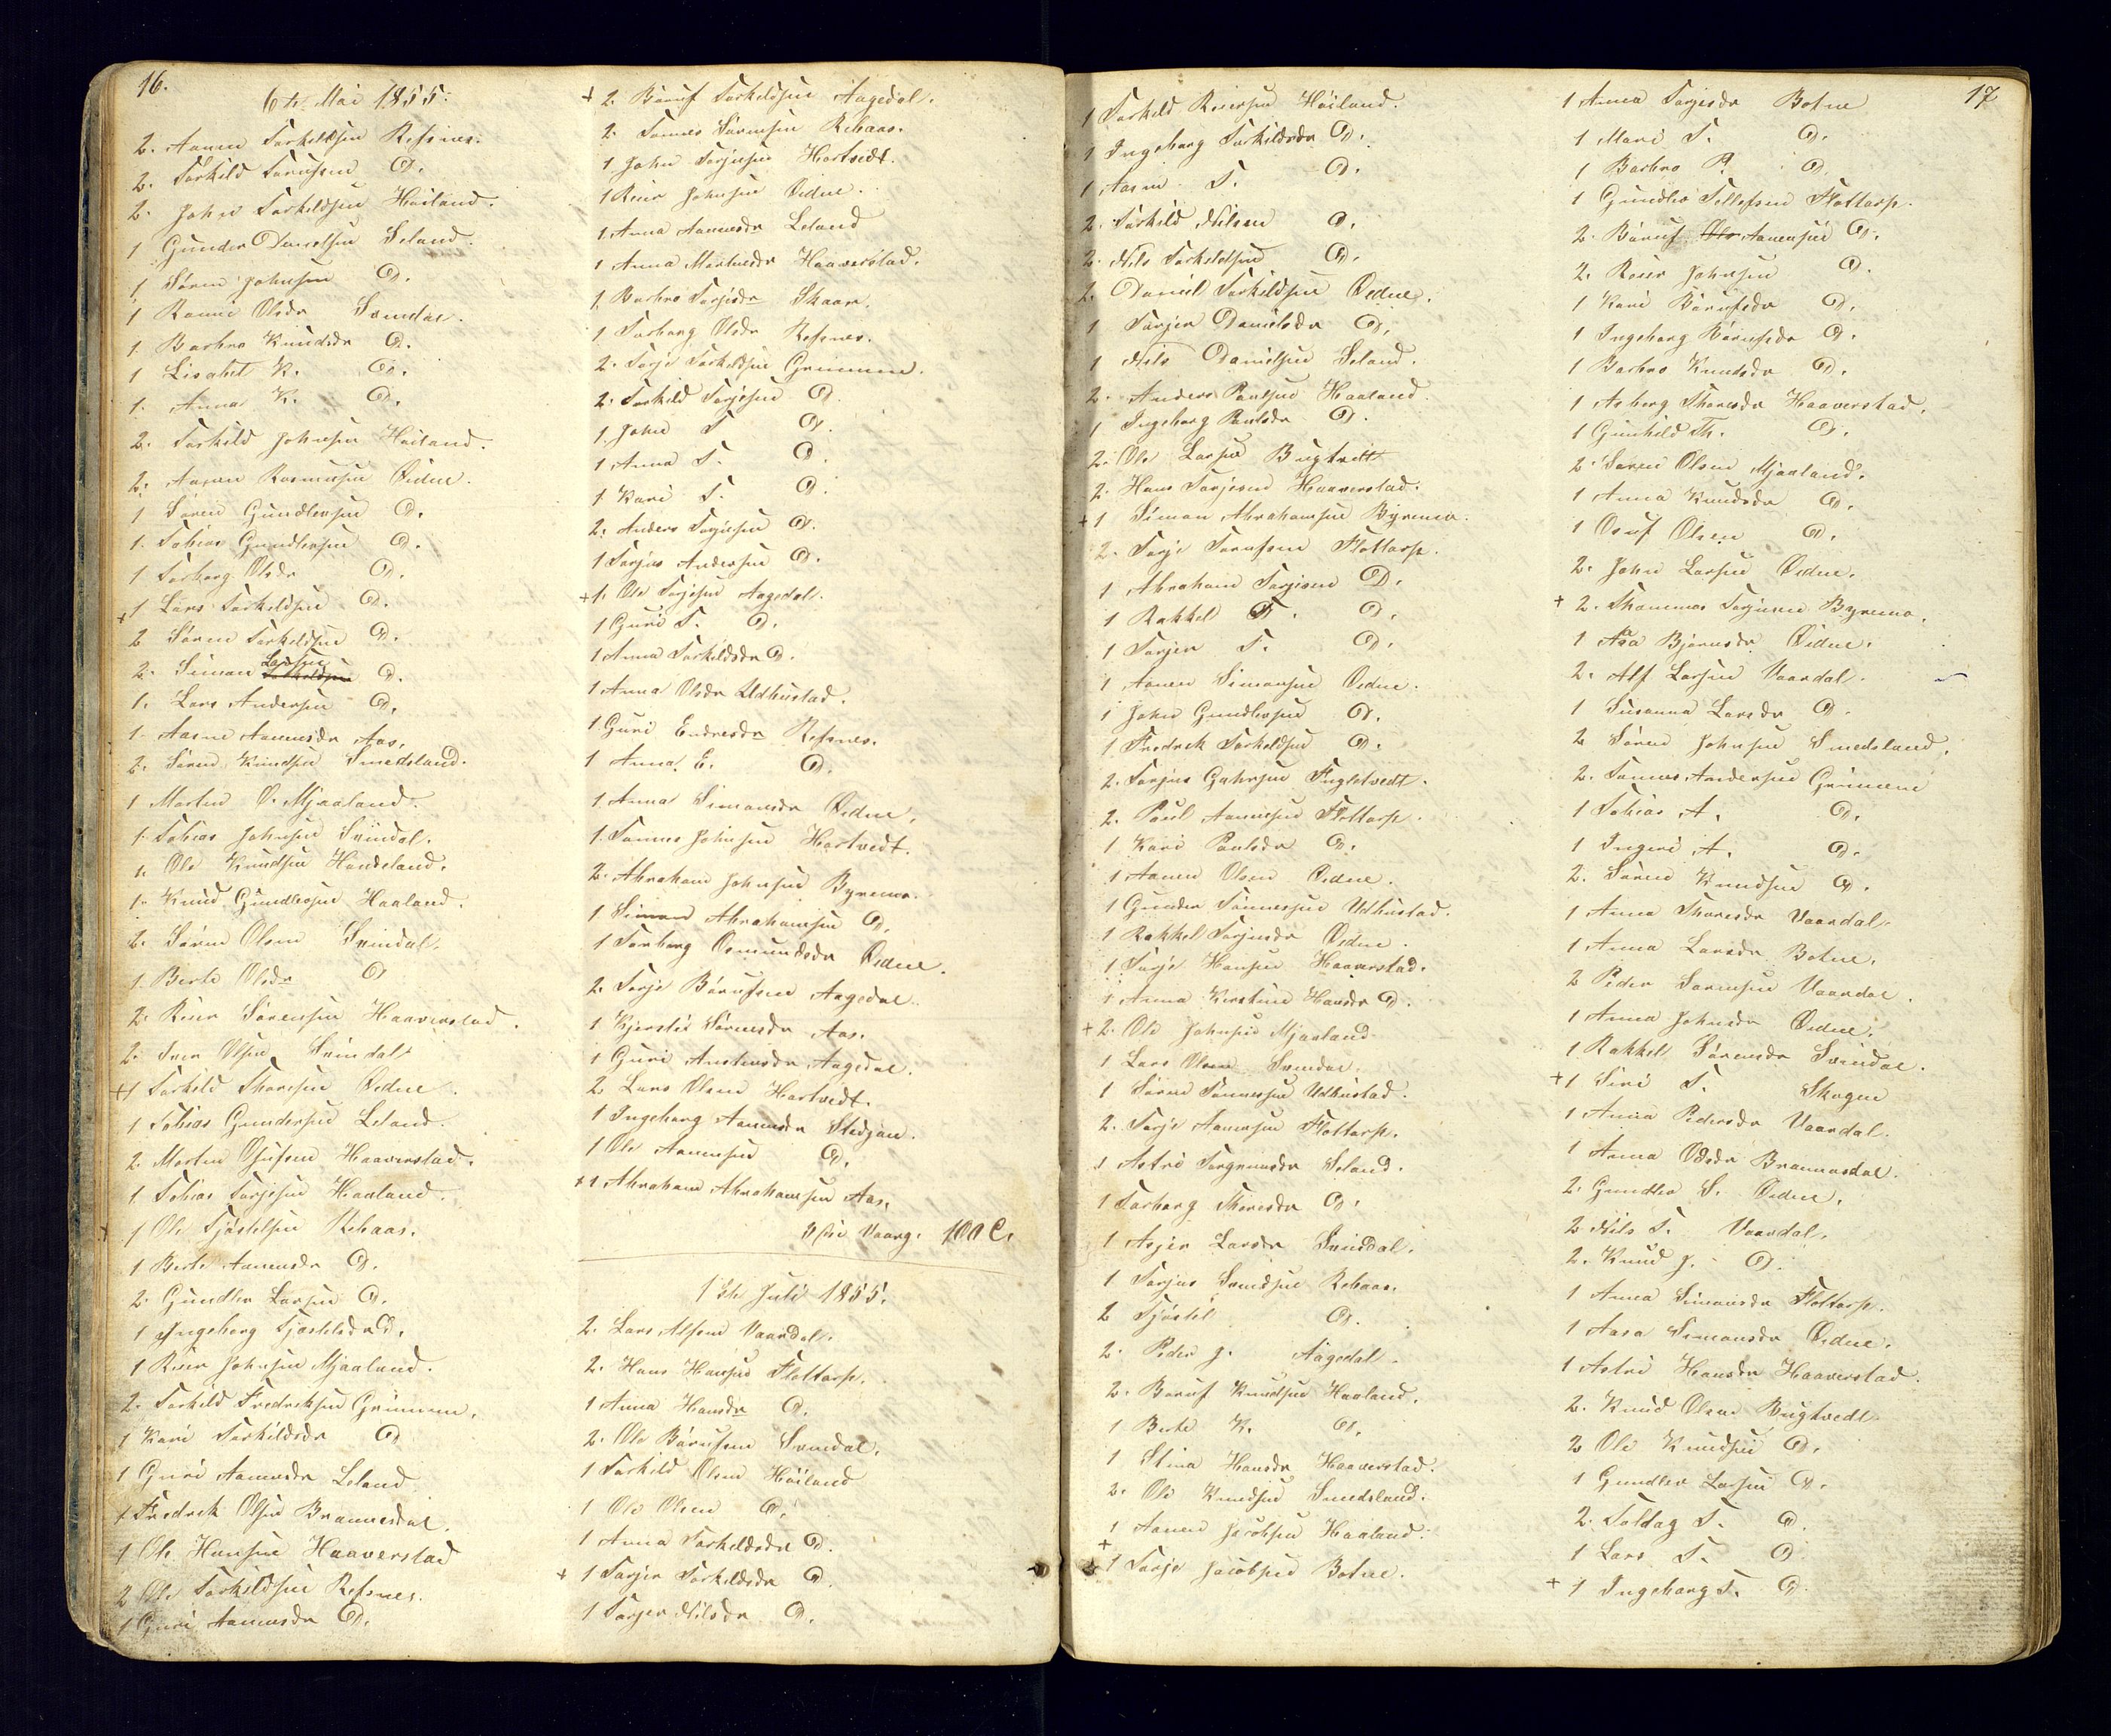 16.
6te Mai 1855.
2. Aanen Torkildsen Refsnes.
2. Torkild Tarufsen D.
2. John Torkildsen Høiland.
1 Gunder Danielsen Leland.
1 Søren Johnsen D.
1 Rannie Olsdr Svindal.
1. Barbro Knudsdr D.
1 Lisabet K. D.
1. Anna K. D.
2. Torkild Johnsen Høiland.
2. Aanen Rasmussen Øidne.
1 Søren Gundlevsen D.
1. Tobias Gundlevsen D.
1 Torborg Olsdr D.
+1 Lars Torkildsen D.
2 Søren Torkildsen D.
2. Simon Larsen D.
1. Lars Andersen D.
1. Aasne Aanensdr Aas.
2. Søren Knudsen Smedsland.
1 Martin O. Mjaaland.
1. Tobias Johnsen Svindal.
1. Ole Knudsen Haadeland.
1. Knud Gundlevsen Haaland.
2. Søren Olsen Svindal.
1. Berte Olsdr D
2. Reier Sørensen Haaverstad.
2. Iver Olsen Svindal
+1 Torkild Thoresen Øidne.
1 Tobias Gundersen Leland.
2. Martin Osufsen Haaverstad.
1. Tobias Torjesen Haaland.
1 Ole Tjøstelsen Rebaas.
1 Berte Aanensdr D.
2. Gundlev Larsen D.
1 Ingeborg Tjøstelsdr D.
1 Reier Johnsen Mjaaland.
2. Torkild Fredriksen Grimmen.
1 Kari Torkildsdr D
1 Guri Aanensdr Leland
1 Fredrik Olsen Brannesdal.
1 Ole Hansen Haaverstad
2 Ole Torkildsen Refsnes.
1 Guri Aanensdr D.
+ 2. Baruf Torkildsen Aagedal.
2. Tønnes Sørensen Rebaas.
1. John Torjusen Hortvedt.
1 Reier Johnsen Øidne.
1. Anna Aanensdr Leland
1 Anna Martinsdr Haaverstad.
1. Barbro Torjesdr Skaare.
1 Torborg Olsdr Refsnes.
2. Torje Torkildsen Grimmen.
2. Torkild Torjesen D.
1. John T D.
1 Anna T. D.
1. Kari T. D.
2. Anders Torjusen D.
1 Torjus Andersen D.
+1. Ole Torjesen Aagedal.
1 Guri T. D.
1 Anna Torkildsdr D.
1 Anna Olsdr Udhustad.
1 Guri Endresdr Refsnes.
1 Anna E. D.
1 Anna Simonsdr Øidne.
1. Tønnes Johnsen Hortvedt.
2. Abraham Johnsen Byremo.
1 Simon Abrahamsen D.
1 Torborg Osmundsdr Øidne.
2. Torje Barufsen Aagedal.
1 Kjersti Sørensdr Aas.
1 Guri Anstensdr Aagedal.
2 Lars Olsen Hortvedt.
1 Ingeborg Aanensdr Stedjan.
1 Ole Aanensen D.
+1 Abraham Abrahamsen Aas.
Vaarg. 100 C.
1ste Juli 1855.
2. Lars Alfsen Vaardal.
2. Hans Hansen Flottorp.
1 Anna Hansdr D.
2. Ole Barufsen Svindal.
1 Torkild Olsen Høiland
1 Ole Olsen D.
1 Anna Torkildsdr D.
+ 1 Torjer Torkildsdr D.
1 Torjer Nilsdr D.
1 Torkild Reiersen Høiland.
1 Ingeborg Torkildsdr D.
1 Aasne T. D.
2. Torkild Nilsen D.
2. Nils Torkildsen D.
2. Daniel Torkildsen Øidne.
1 Torjer Danielsdr D.
1 Nils Danielsen Leland.
2. Anders Paulsen Haaland.
1 Ingeborg Paulsdr D.
2. Ole Larsen Bugtvedt
2. Hans Torjesen Haaverstad.
+1 Simon Abrahamsen Byremo.
2. Torje Tarufsen Flottorp.
1 Abraham Torjesen D.
1 Rakkel T. D.
1 Torjer T. D.
1 Aanen Simonsen Øidne.
1 John Gundlevsen D.
1 Fredrik Torkildsen D.
2. Torjus Gahrsen Fuglstvedt.
2. Paul Aanensen Flottorp.
1 Kari Paulsdr D.
1 Aanen Olsen Øidne.
1 Gunder Tønnesen Udhustad.
1 Rakkel Torjusdr Øidne.
1 Torje Hansen Haaverstad.
1 Anna Kirstine Hansdr D.
+ 2. Ole Johnsen Mjaaland
1 Lars Olsen Svindal.
1 Søren Tønnesen Udhustad.
2. Torje Aanensen Flottorp.
1 Astri Torgrimsdr Leland.
1 Torborg Thoresdr D.
1 Asjer Larsdr Svindal.
1 Torjus Svendsen Rebaas.
2 Tjøstel D.
2. Peder J. Aagedal.
2. Baruf Knudsen Haaland.
1 Berte K. D.
1 Stina Hansdr Haaverstad.
2. Ole Knudsen Smedsland.
1 Aanen Jacobsen Haaland.
+1 Torje Jacobsen Botne.
17
1 Anna Torjesdr Botne
1 Mari T. D.
1 Barbro P. D.
1 Gundlev Tellefsen Flottorp.
2. Baruf Aanensen D.
2. Reier Johnsen D.
1 Kari Barufsdr D.
1 Ingeborg Barufsdr D.
1 Barbro Knudsdr D.
1 Asborg Thoresdr Haaverstad.
1 Gunhild Th. D.
2 Søren Olsen Mjaaland.
1 Anna Knudsdr D.
1 Osuf Olsen D.
2. John Larsen Øidne.
+ 2. Thommas Torjusen Byremo.
1 Asa Bjørnsdr Øidne.
2. Alf Larsen Vaardal.
1 Susanna Larsdr D.
2 Søren Johnsen Smedsland.
2. Tønnes Andersen Grimmen
1 Tobias A. D.
1 Ingeri A. D.
2. Søren Knudsen D.
1 Anna Thoresdr Vaardal.
1 Anna Larsdr Botne.
2 Peder Sørensen Vaardal.
1 Anna Johnsdr Øidne.
1 Rakkel Sørensdr Svindal.
+1 Siri T. Skogen
1 Anna Pedersdr Vaardal.
1 Anna Olsdr Brannasdal.
2. Gundlev S. Øidne.
2 Nils T. Vaardal.
2. Knud J. D.
1 Anna Simonsdr Flottorp.
1 Aasa Simonsdr Øidne.
1 Astri Hansdr Haaverstad.
2. Knud Olsen Bugtvedt
2 Ole Knudsen D.
1 Gundlev Larsen D.
2. Foldag T. D.
1 Lars T. D
+ 1 Ingeborg T. D